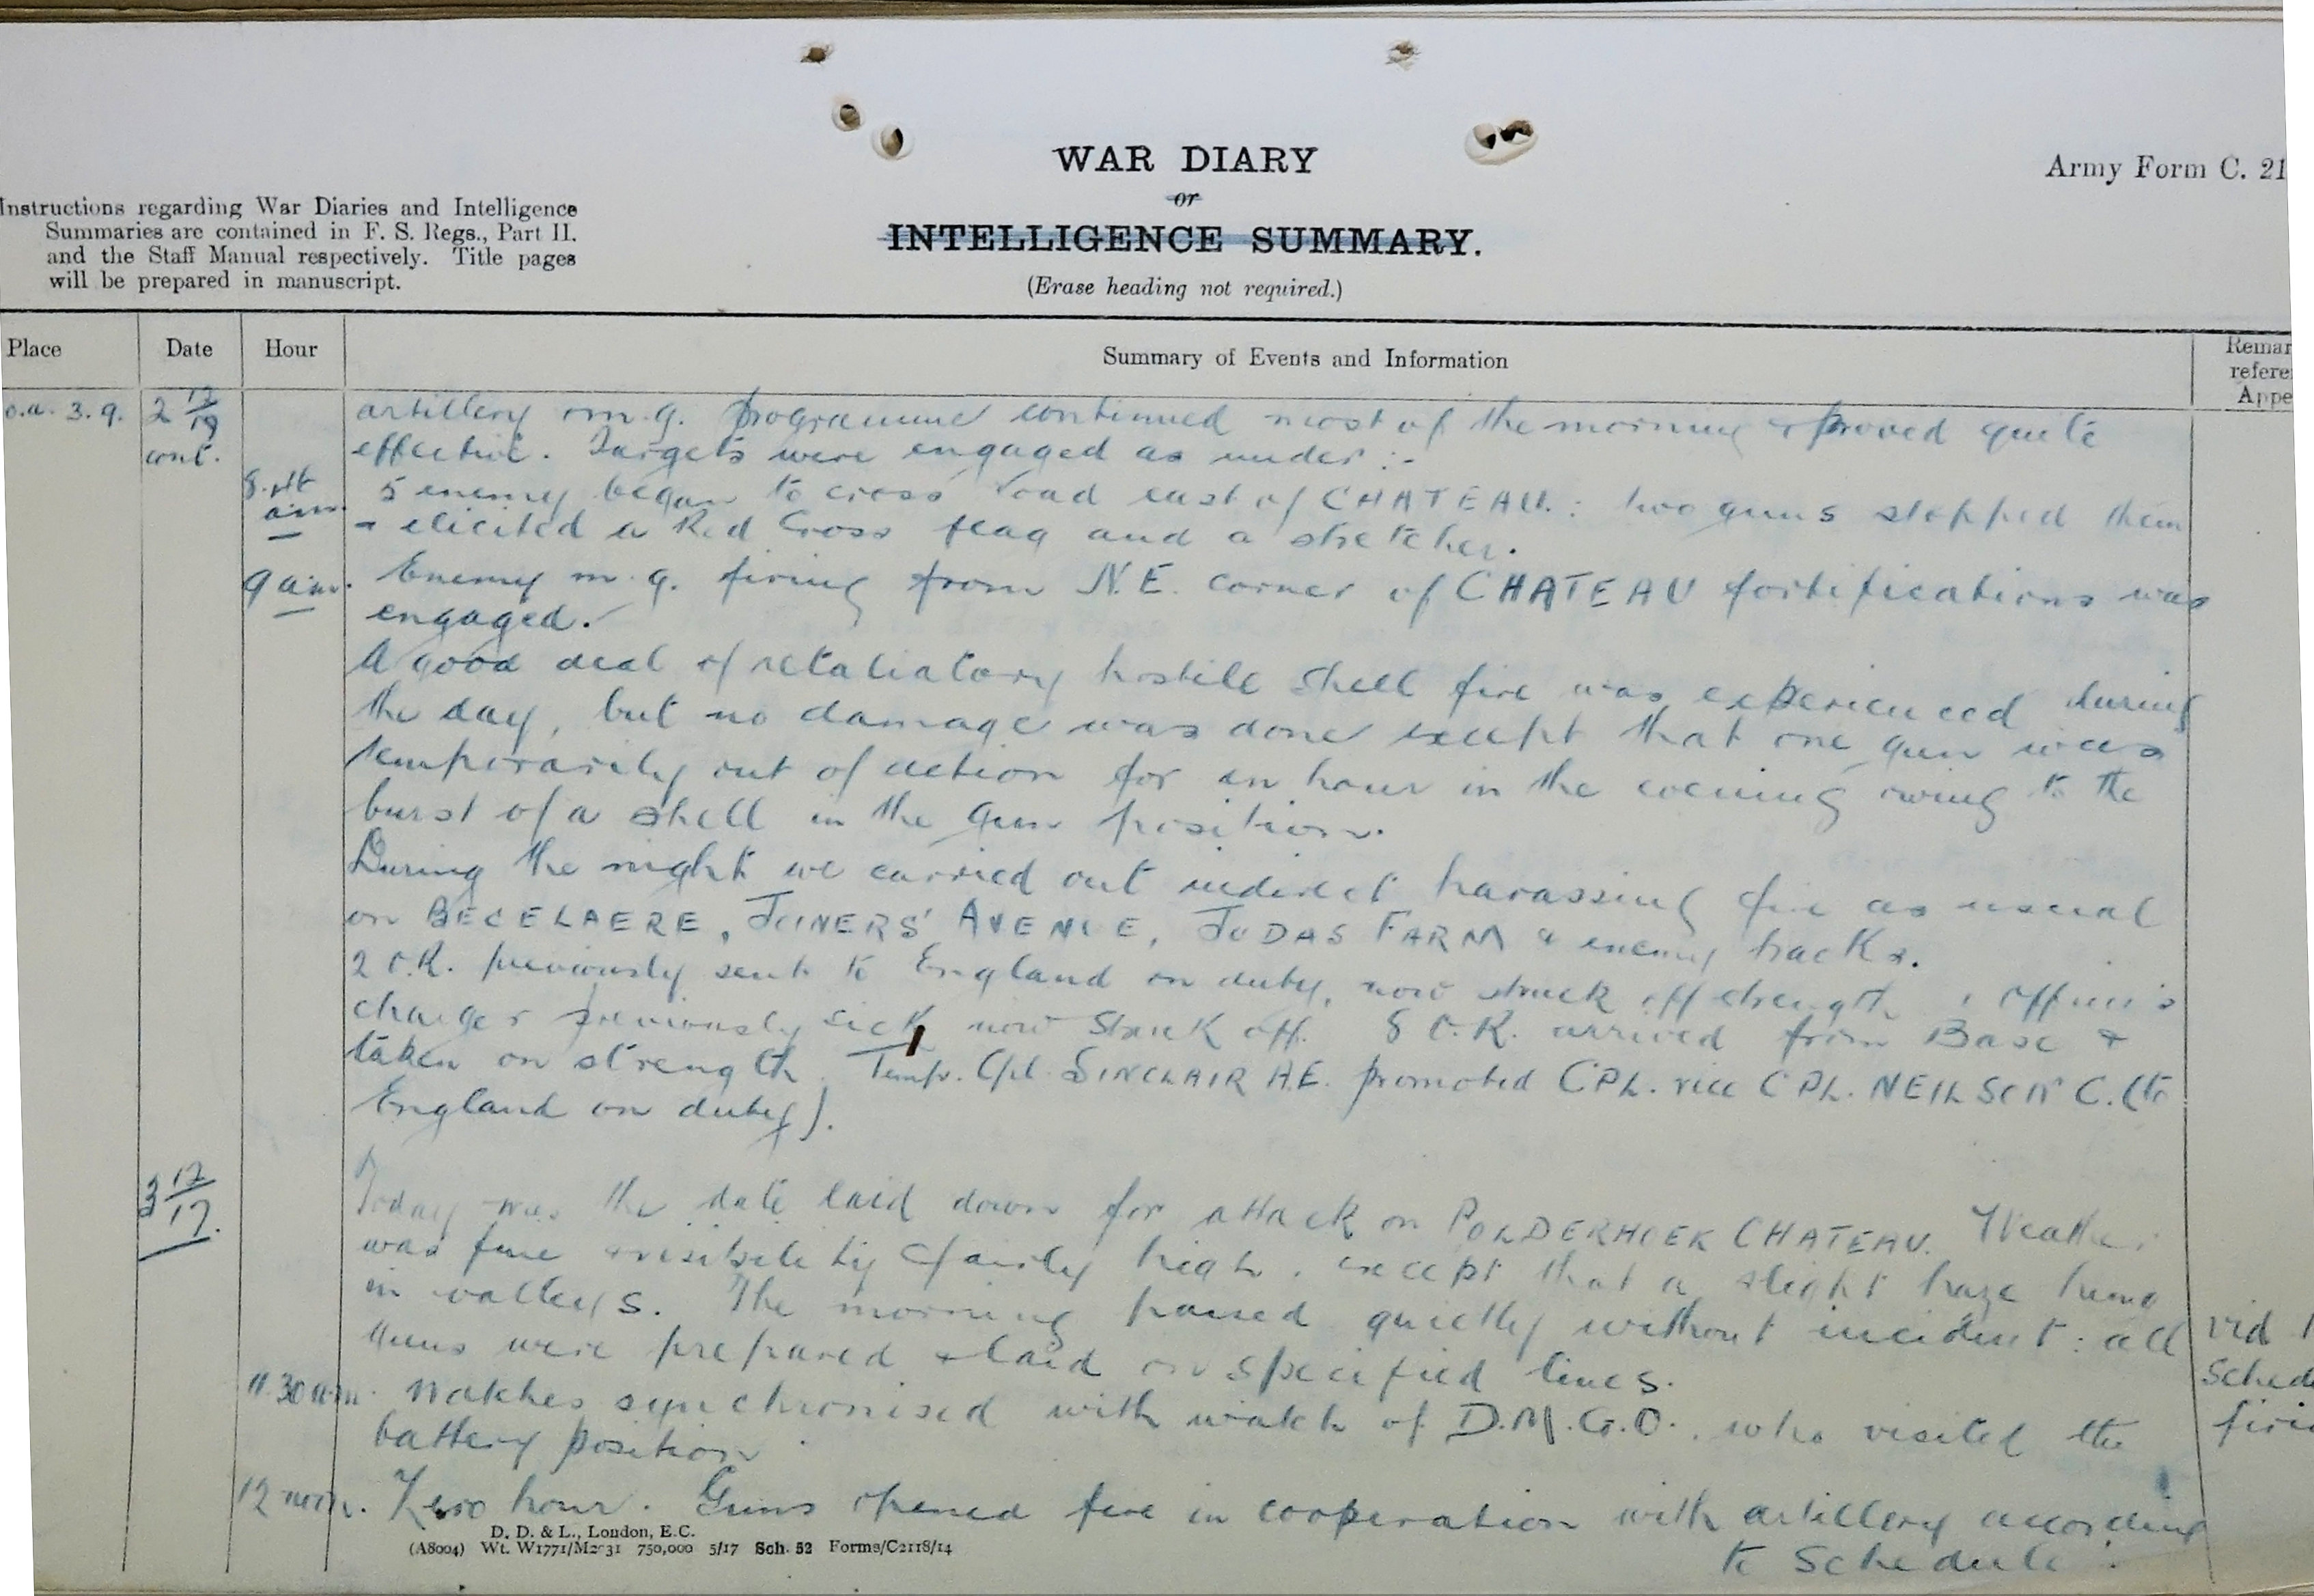 WAR DIARY
or
INTELLIGENCE SUMMARY.
(Erase heading not required.)
Army Form C. 21
Instructions regarding War Diaries and Intelligence
Summaries are contained in F. S. Regs., Part II.
and the Staff Manual respectively. Title pages
will be prepared in manuscript.
Place Date Hour Summary of Events and Information Remar
refere
Appe
3.9. 2 12/17 cont. artillery & m.g. programme continued most of the morning & proved quite
effective. Targets were engaged as under :-
am. 5 enemy began to cross road east of CHATEAU. : two guns stopped them
& elicited a Red Cross flag and a stretcher.
9 am. Enemy m.g. firing from N.E. corner of CHATEAU fortifications was
engaged.
A good deal of retaliatory hostile shell fire was experienced during
the day, but no damage was done except that one gun was
temporarily out of action for an hour in the evening owing to the
burst of a shell in the gun position.
During the night we carried out indirect harassing fire as usual
on BECELAERE, JOINERS' AVENUE, JUDAS FARM & enemy tracks.
2 O.R. previously sent to England on duty, now struck off strength, 1 officer's
charger previously sick now struck off. 8 O.R. arrived from Base &
taken on strength. Temp. Cpl. SINCLAIR A.E. promoted CPL. vice CPL. NEILSON C. (to
England on duty).
3 12/17. Today was the date laid down for attack on POLDERHOEK CHATEAU. Weather
was fine & visibility fairly high, except that a slight haze hung
in valleys. The morning passed quietly without incident : all
guns were prepared & laid on specified lines.
vid
Sched
firi
11.30 a.m. Watches synchronised with watch of D.M.G.O., who visited the
battery position.
12 noon. Zero hour. Guns opened fire in cooperation with artillery according
to Schedule.
D. D. & L., London, E.C.
(A8004) Wt. W1771/M2031 750,000 5/17 Sch. 52 Forms/C2118/14